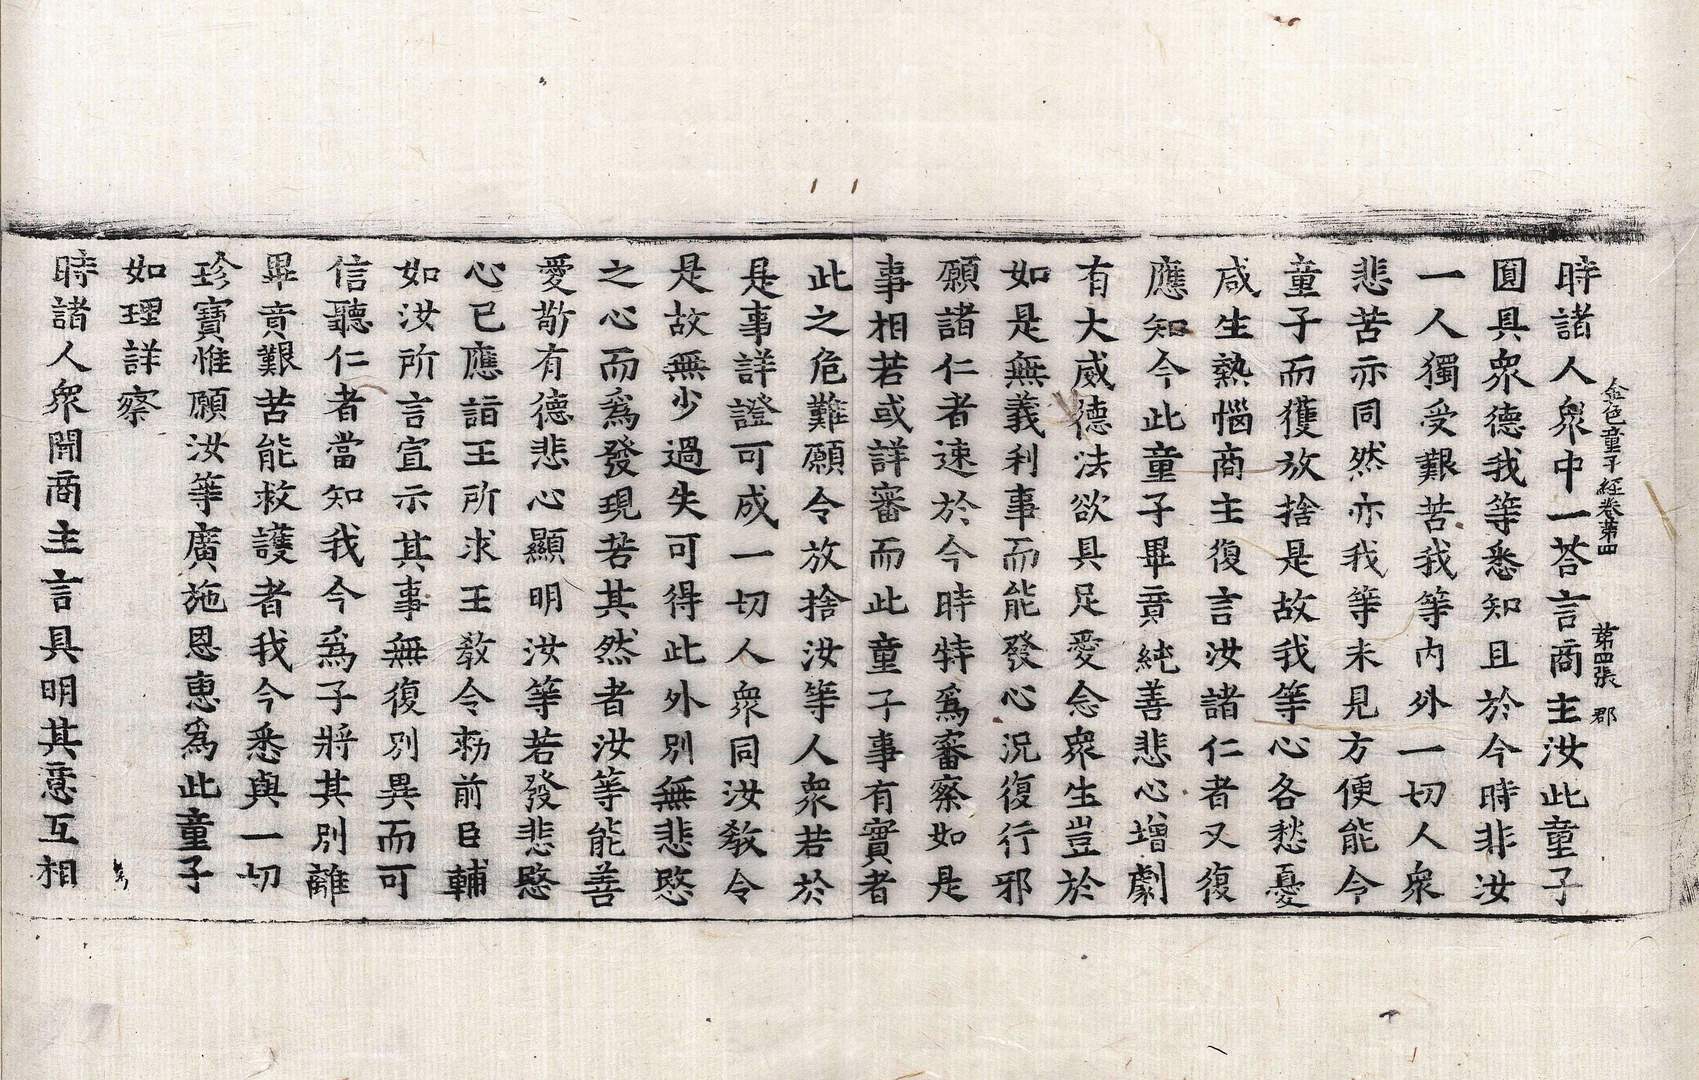 金色童子經卷第四　第四張　郡
時諸人衆中一荅言商主汝此童子
圓具衆德我等悉知且於今時非汝
一人獨受艱苦我等內外一切人衆
悲苦亦同然亦我等未見方便能令
童子而獲放捨是故我等心各愁憂
咸生熱惱商主復言汝諸仁者又復
應知今此童子畢竟純善悲心增劇
有大威德法欲具足愛念衆生豈於
如是無義利事而能發心況復行邪
願諸仁者速於今時特爲審察如是
事相若或詳審而此童子事有實者
此之危難願令放捨汝等人衆若於
是事詳證可成一切人衆同汝教令
是故無少過失可得此外別無悲愍
之心而爲發現若其然者汝等能善
愛敬有德悲心顯明汝等若發悲愍
心已應詣王所求王教令勑前臣輔
如汝所言宣示其事無復別異而可
信聽仁者當知我今爲子將其別離
畢竟艱苦能救護者我今悉與一切
珍寶惟願汝等廣施恩惠爲此童子
如理詳察
時諸人衆聞商主言具明其意互相